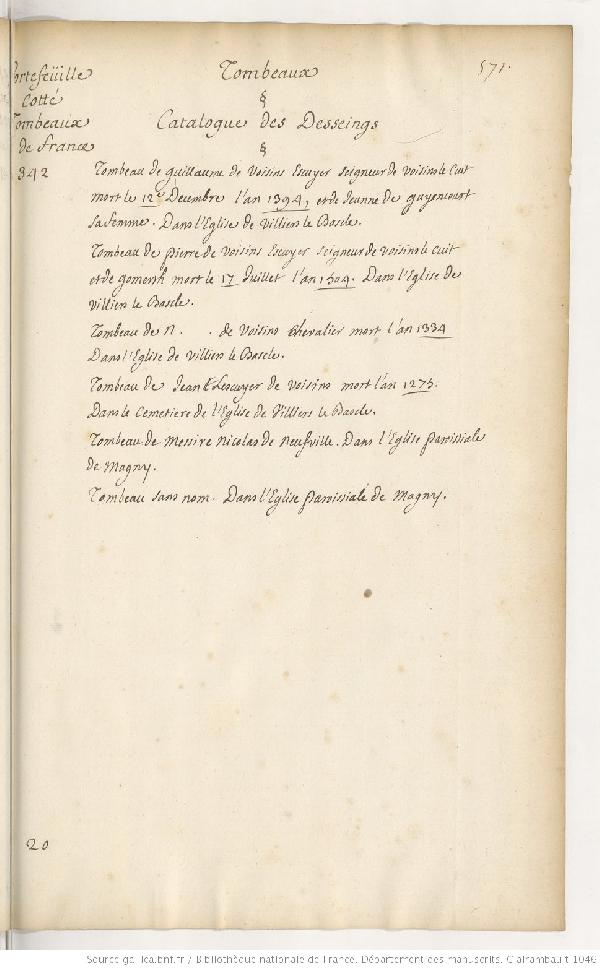 571.
Portefeüille
Cotté
Tombeaux
de france
342
Tombeaux
§
Catalogue des Desseings
§
Tombeau de guillaume de Voisins Escuyer Seigneur de Voisins le Cuit
mort le 12e Decembre l'an 1394, et de Jeanne de guyencourt
sa femme. Dans l'Eglise de Villiers le Bascle.
Tombeau de pierre de Voisins Escuyer seigneur de voisins le Cuit
et de gomerih mort le 17 Juillet l'an 1504. Dans l'Eglise de
Villiers le Bascle.
Tombeau de N. . de Voisins Chevalier mort l'an 1334
Dans l'Eglise de Villiers le Bascle.
Tombeau de Jean Lescuyer de Voisins mort l'an 1275.
Dans le Cemetiere de l'Eglise de Villiers le Bascle.
Tombeau de Messire Nicolas de Neufville. Dans l'Eglise Paroissiale
de Magny.
Tombeau sans nom. Dans l'Eglise Paroissiale de Magny.
20
Source gallica.bnf.fr / Bibliothèque nationale de France. Département des manuscrits. Clairambault 1046